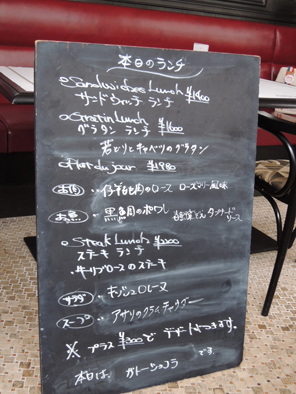 本日のランチ
○Sandwiches Lunch
サンドウィッチ ランチ
○Gratin Lunch
グラタン ランチ ¥1600
若どりとキャベツのグラタン
○Plat du jour ¥1980
お肉 ‥ 仔羊肩肉のロース ローズマリー風味
お魚 ‥ 黒鯛のポワレ
ソース
○Steak Lunch
ステーキ ランチ
・牛リブロースのステーキ
サラダ ‥ キッシュロレーヌ
スープ ‥ アサリのクラムチャウダー
※ プラス ¥300で デザートつきます。
本日は、ガトーショコラ です。